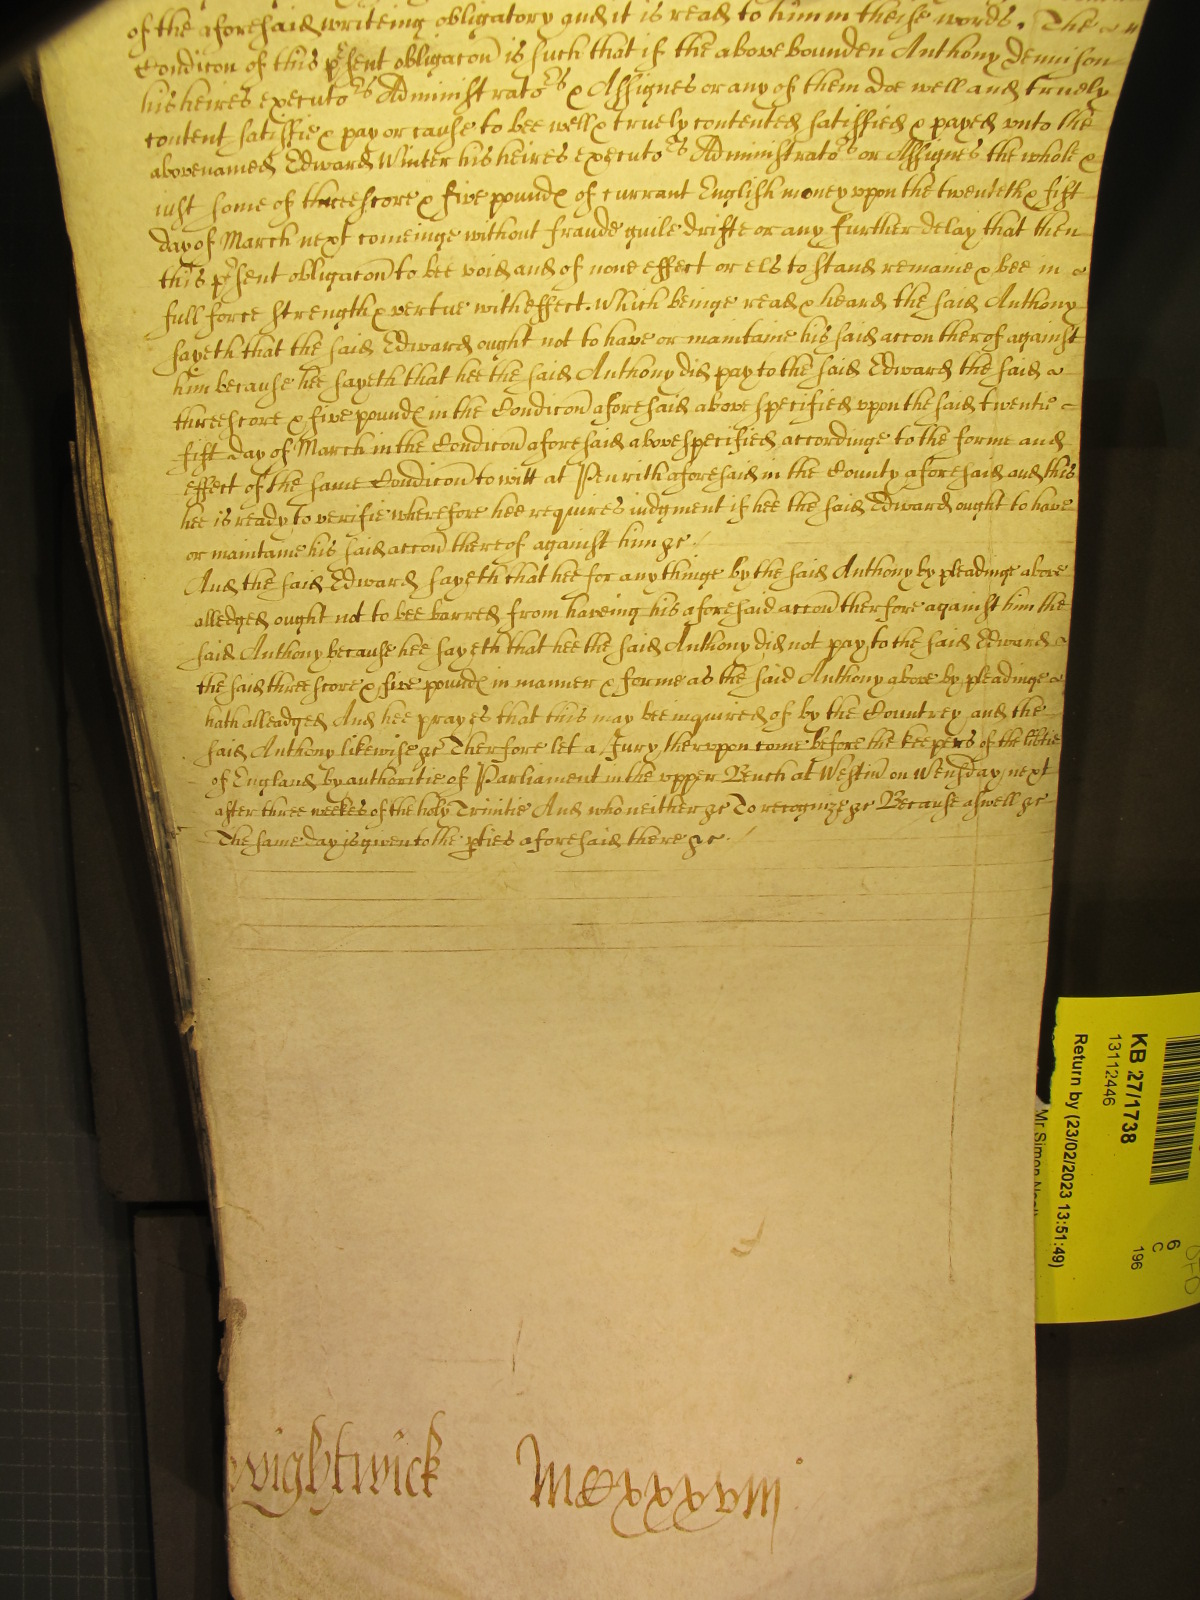 of the aforesaid writeing obligatory and it is read to him in theise words. The
Condicon of this psent obligacon is such that if the above bounden Anthony Dennison
his heires executors Administrators & Assignes or any of them doe well and truely
content satisfie & pay or cause to bee well & truely contented satisfied & payed unto the
abovenamed Edward Winter his heires executors Administrators or Assignes the whole &
iust some of threescore & five pounds of currant English money vpon the twenteth & fift
day of March next comeinge without fraude guile drifte or any further delay that then
this psent obligacon to bee void and of none effect or els to stand remaine & bee in
full force strength & vertue with effect. Which beinge read & heard the said Anthony
sayeth that the said Edward ought not to have or maintaine his said accon therof against
him because hee sayeth that hee the said Anthony did pay to the said Edward the said
threescore & five pounds in the Condicon aforesaid above specified vpon the said twentie
fift day of March in the Condicon aforesaid above specified accordinge to the forme and
effect of the same Condicon to witt at Penrith aforesaid in the County aforesaid and this
hee is ready to verifie wherefore hee requires iudgment if hee the said Edward ought to have
or maintaine his said accon thereof against him &c.
And the said Edward sayeth that hee for any thinge by the said Anthony by pleadinge above
alledged ought not to bee barred from haveing his aforesaid accon therfore against him the
said Anthony because hee sayeth that hee the said Anthony did not pay to the said Edward
the said threescore & five pounds in manner & forme as the said Anthony above by pleadinge
hath alleadged And hee prayes that this may bee inquired of by the Countrey and the
said Anthony likewise &c Therfore let a Jury thervpon come before the keepers of the libtie
of England by authoritie of Parliament in the vpper Bench at Westm on Wensday next
after three weekes of the holy Trinitie And who neither &c To recognize &c Because aswell &c
The same day is given to the pties aforesaid there &c.
Wightwick MCxxxviij
KB 27/1738
13112446
Return by (23/02/2023 13:51:49)
6
C
196